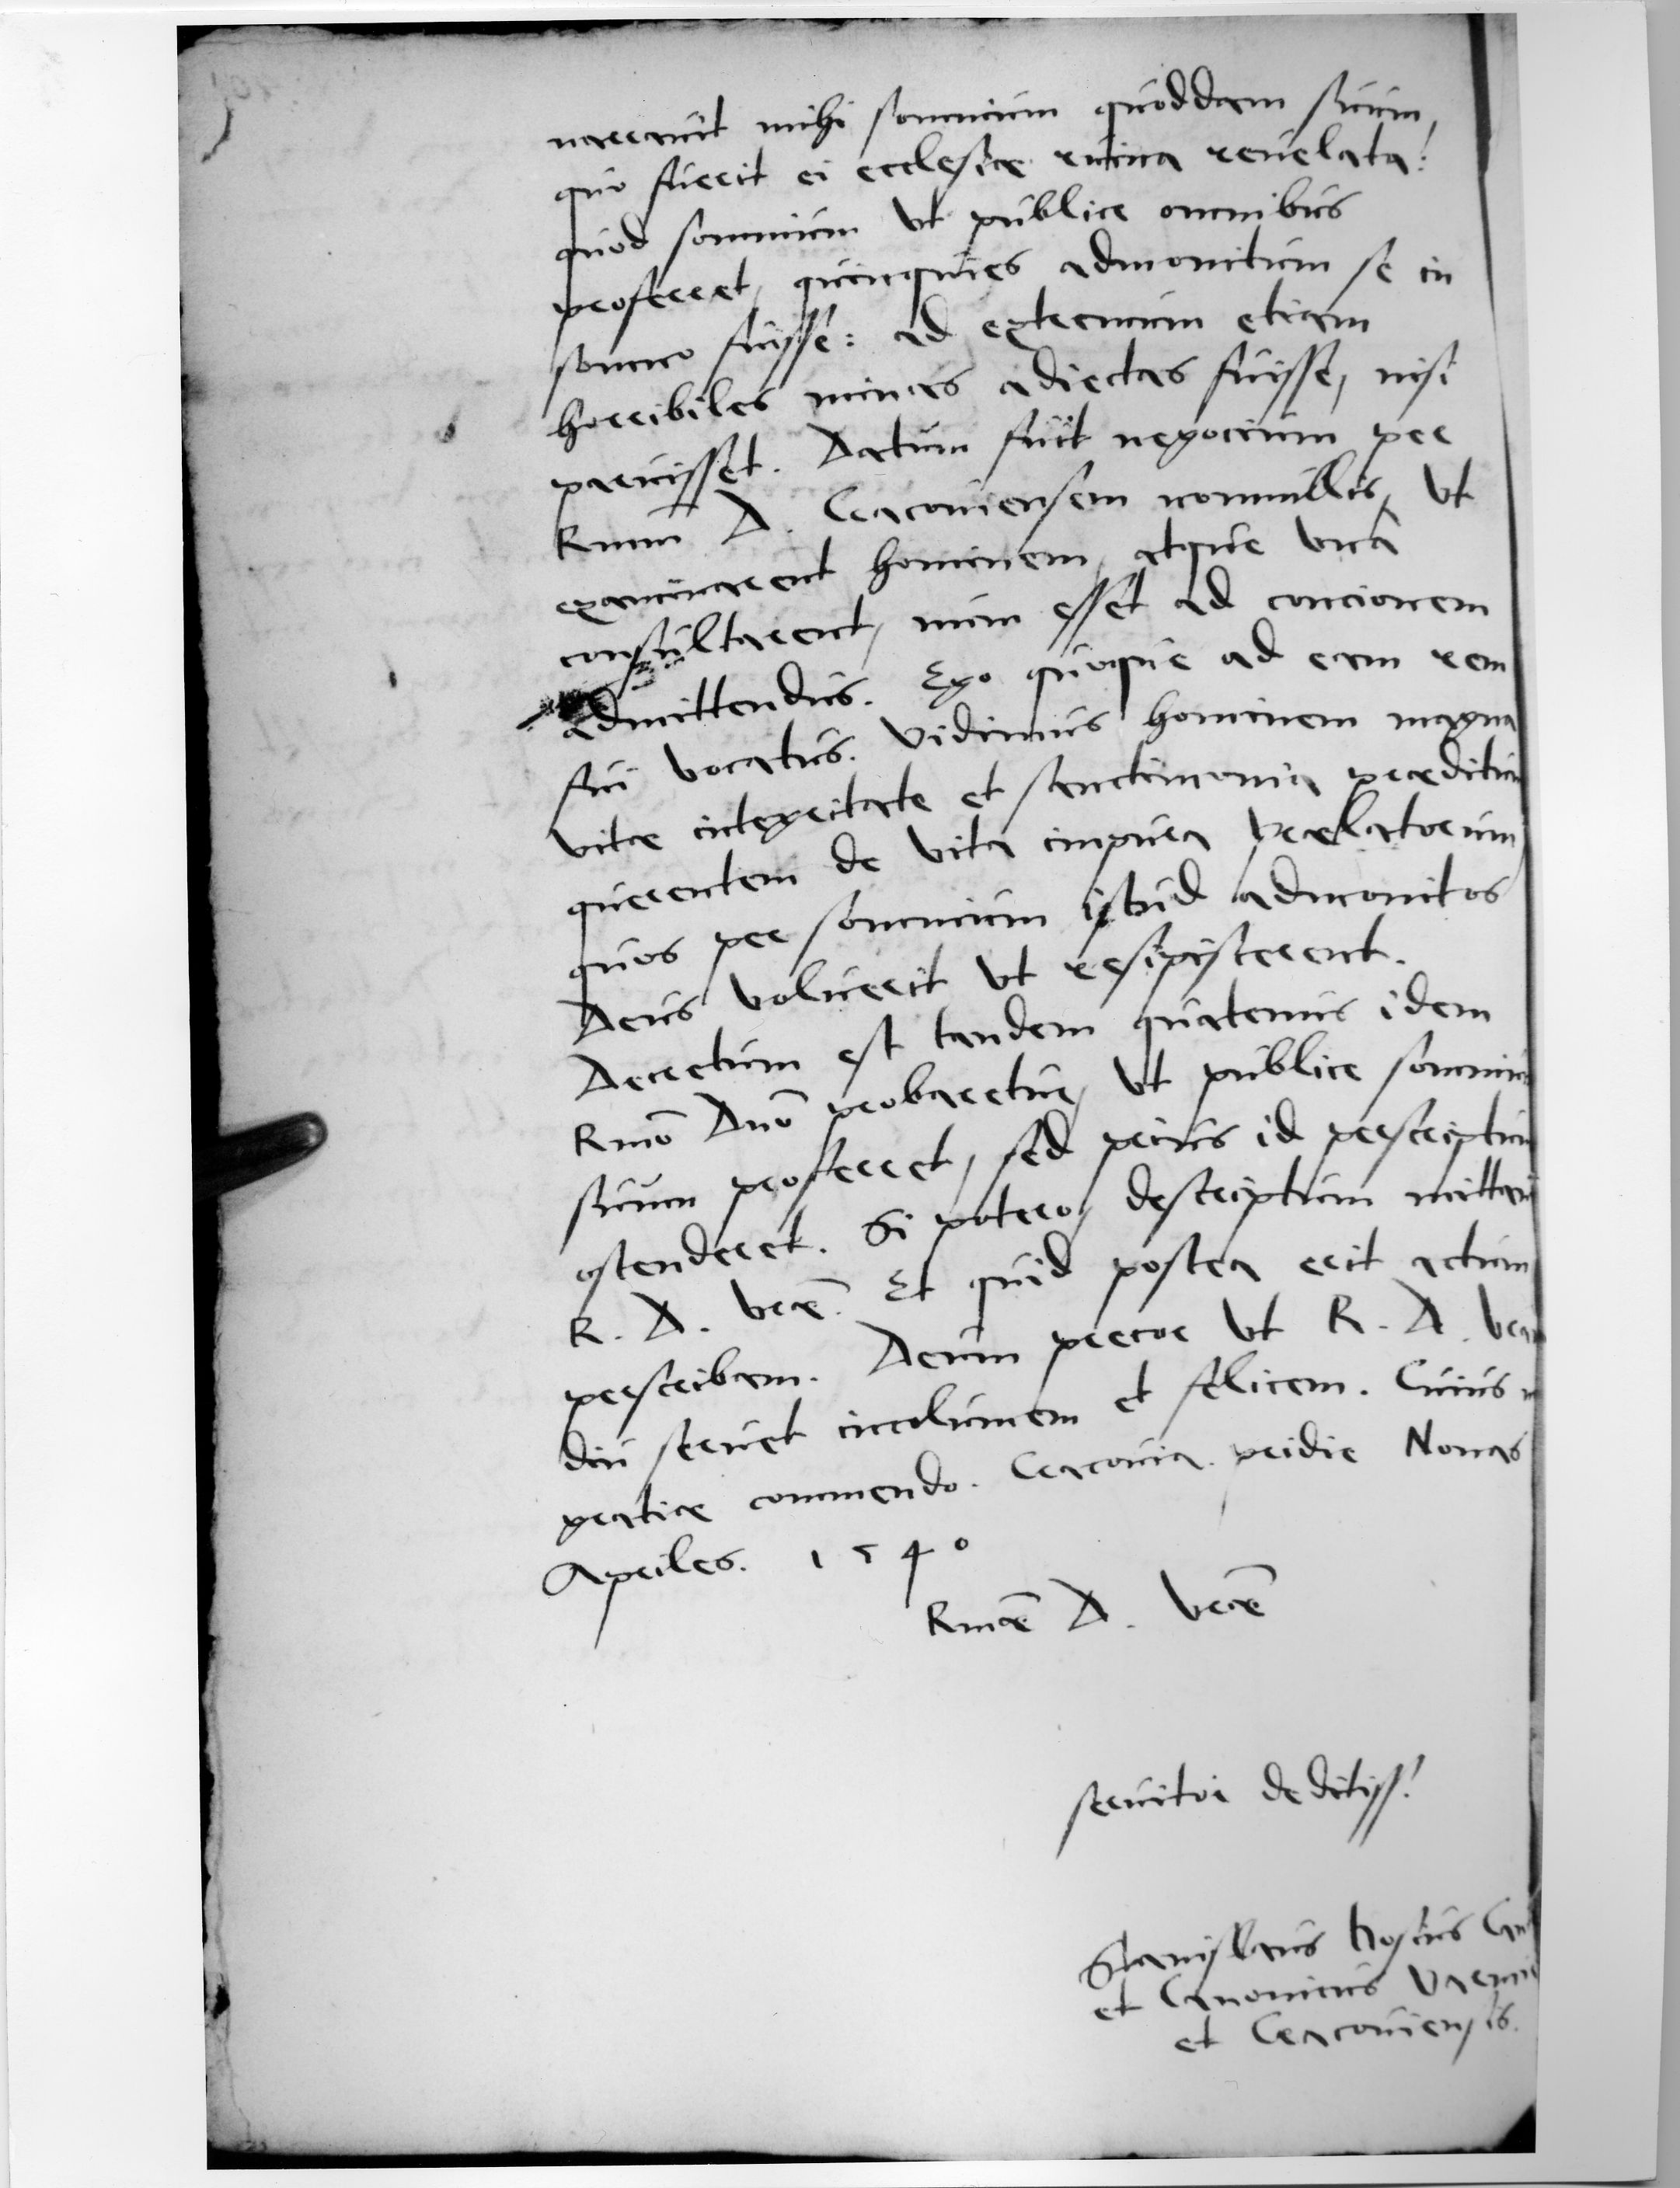 narravit mihi somnium quoddam suum,
quo fuerit ei ecclesiae ruina revelata:
quod somnium ut publice omnibus
proferret, quinquies admonitum se in
somno fuisse: ad extremum etiam
horribiles minas adiectas fuisse, nisi
paruisset. Datum fuit negocium per
Rmum D. Cracoviensem nonnullis, ut
examinarent hominem, atque una
consultarent, num esset ad concionem
admittendus. Ego quoque ad eam rem
fui vocatus. Vidimus hominem magna
vitae integritate et sanctimonia praeditum
querentem de vita impura praelatorum
quos per somnium istud admonitos
Deus voluerit ut resipisterent.
Decretum est tandem quatenus idem
Rmo Dno probaretur, ut publice somnium
suum proferret, sed prius id perscriptum
ostenderet. Si potero, descriptum mittam
R. D. Vrae. Et quid postea erit actum
perscribam. Deum precor ut R. D. Vram
diu servet incolumem et felicem. Cuius
gratiae commendo. Cracovia. pridie Nonas
Apriles. 1540
Rmae D. Vrae
servitor deditiss:
Stanislaus hosius
et Canonicus
et Cracoviensis.